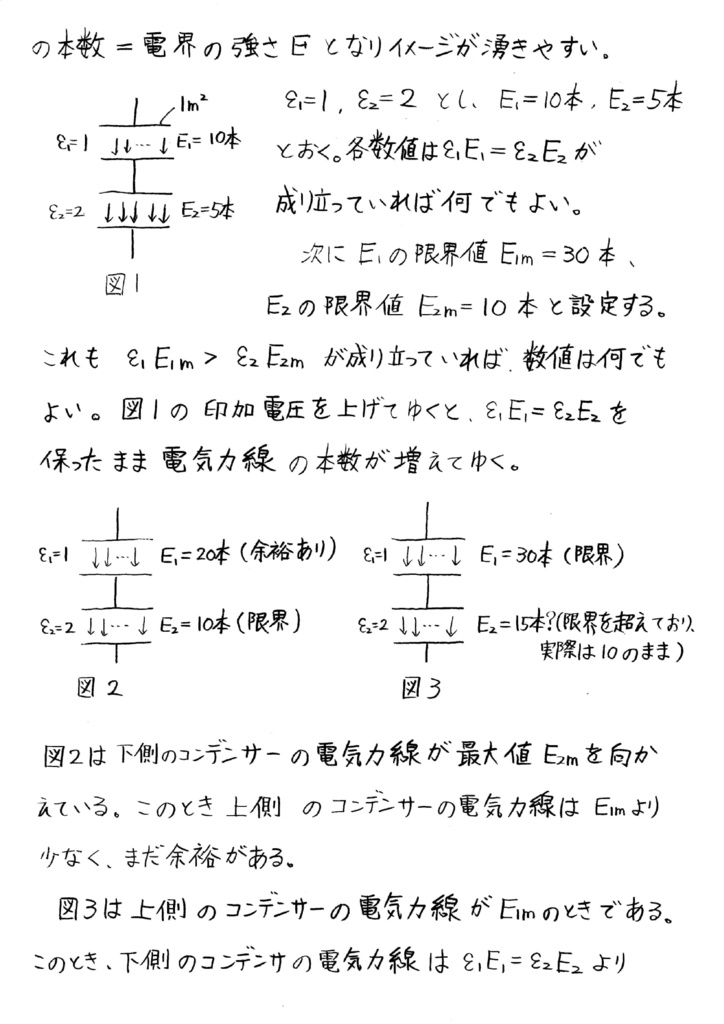 の本数 = 電界の強さ E となりイメージが湧きやすい。
1m²
ε₁=1 E₁=10本
ε₂=2 E₂=5本
図1
ε₁=1, ε₂=2 とし、E₁=10本, E₂=5本
とおく。各数値はε₁E₁=ε₂E₂が
成り立っていれば何でもよい。
次に E₁の限界値 E₁m=30本、
E₂の限界値 E₂m=10本と設定する。
これも ε₁E₁m > ε₂E₂m が成り立っていれば、数値は何でも
よい。図1の印加電圧を上げてゆくと、ε₁E₁=ε₂E₂を
保ったまま電気力線の本数が増えてゆく。
ε₁=1 E₁=20本(余裕あり)
ε₂=2 E₂=10本(限界)
図2
ε₁=1 E₁=30本(限界)
ε₂=2 E₂=15本?(限界を超えており、
実際は10のまま)
図3
図2は下側のコンデンサーの電気力線が最大値E₂mを向か
えている。このとき上側のコンデンサーの電気力線はE₁mより
少なく、まだ余裕がある。
図3は上側のコンデンサーの電気力線がE₁mのときである。
このとき、下側のコンデンサの電気力線は ε₁E₁=ε₂E₂より